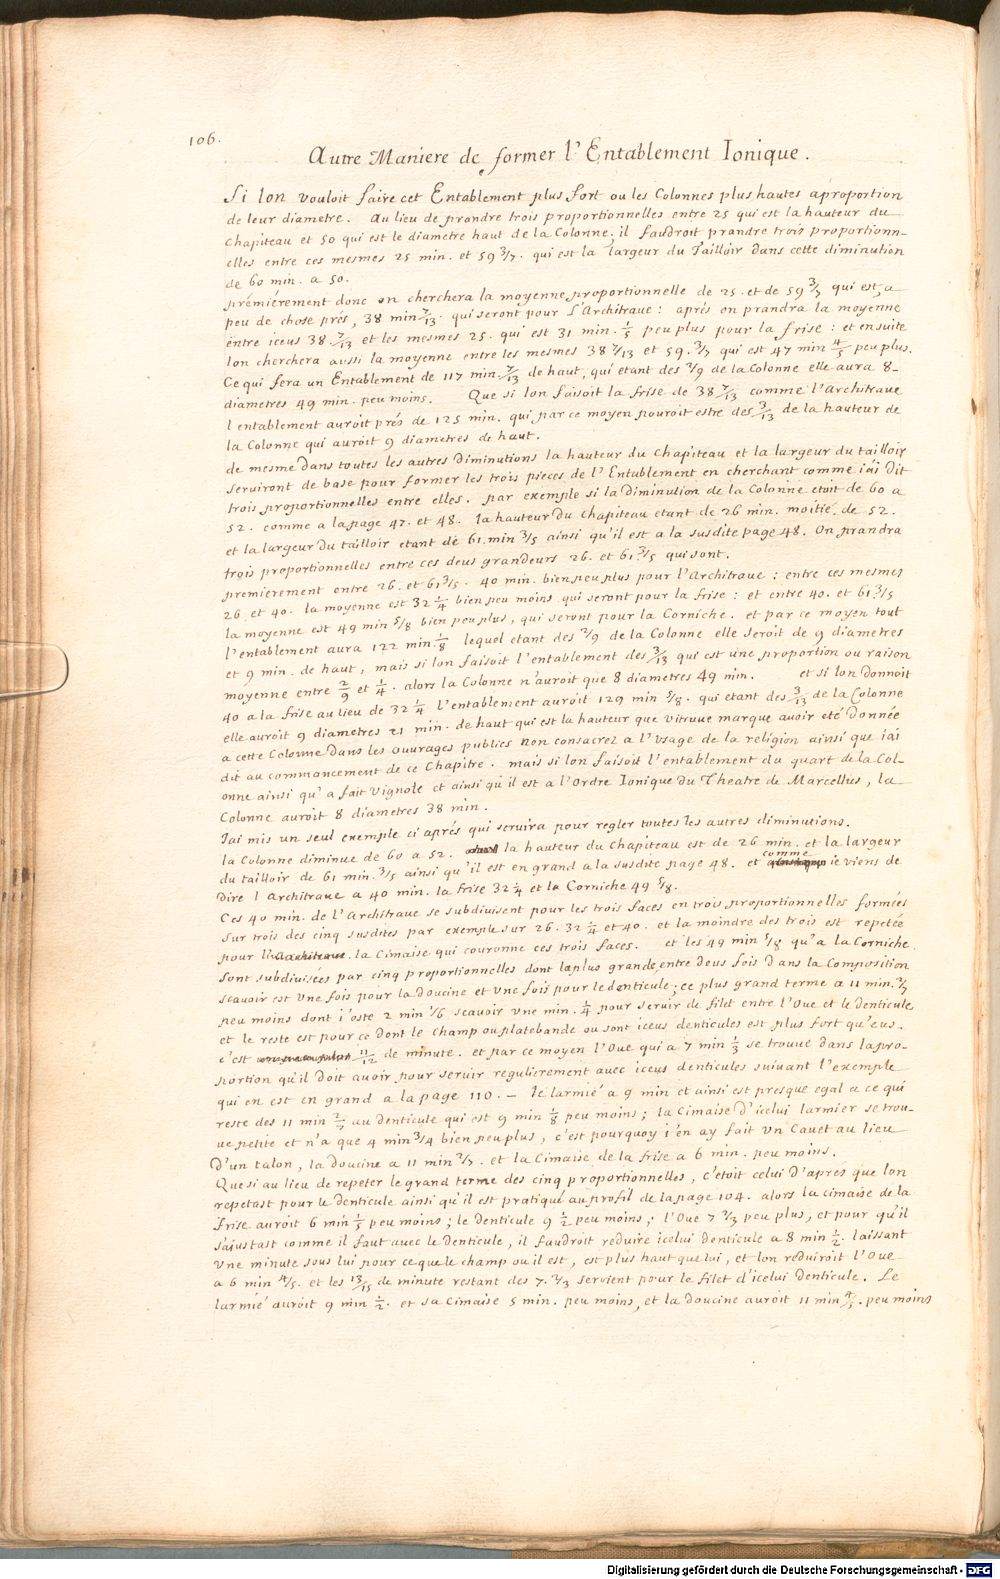 106.
Autre Maniere de former l'Entablement Ionique.
Si lon vouloit faire cet Entablement plus fort ou les Colonnes plus hautes aproportion
de leur diametre. au lieu de prondre trois proportionnelles entre 25 qui est la hauteur du
chapiteau et 50 qui est le diametre haut de la Colonne. il faudroit prandre trois proportionn-
elles entre ces mesmes 25 min. et 59 3/7. qui est la largeur du Tailloir dans cette diminution
de 60 min. a 50.
prémiérement donc on cherchera la moyenne proportionnelle de 25. et de 59 3/7 qui est, a
peu de chose prés, 38 min 7/13. qui seront pour L'Architraue: aprés on prandra la moyenne
entre iceus 38 7/13 et les mesmes 25. qui est 31 min. 1/5 peu plus pour la frise: et ensuite
lon cherchera aussi la moyenne entre les mesmes 38 7/13 et 59. 3/7 qui est 47 min 4/5 peu plus.
Ce qui fera un Entablement de 117 min. 7/13 de haut, qui etant des 2/9 de la Colonne elle aura 8-
diametres 49 min. peu moins. Que si lon faisoit la frise de 38 7/13 comme l'Architraue
l entablement auroit prés de 125 min. qui par ce moyen pouroit estre des 3/13 de la hauteur de
la Colonne qui auroit 9 diametres de haut.
de mesme dans toutes les autres Diminutions la hauteur du Chapiteau et la largeur du tailloir
seruiront de base pour former les trois pieces de l'Entablement en cherchant comme iái dit
trois proportionnelles entre elles. par exemple si la Diminution de la Colonne etoit de 60 a
52. comme a la page 47. et 48. la hauteur du Chapiteau etant de 26 min. moitié de 52.
et la largeur du tailloir etant de 61. min 3/5 ainsi qu'il est a la susdite page 48. On prandra
trois proportionnelles entre ces deus grandeurs 26. et 61. 3/5 qui sont.
premierement entre 26. et 61 3/5. 40 min. bien peu plus pour l'Architraue: entre ces mesmes
26 et 40. la moyenne est 32 1/4 bien peu moins qui seront pour la frise: et entre 40. et 61 3/5
la moyenne est 49 min 5/8 bien peu plus, qui seront pour la Corniche. et par ce moyen tout
l'entablement aura 122 min. 1/8 lequel etant des 2/9 de la Colonne elle seroit de 9 diametres
et 9 min. de haut, mais si lon faisoit l'entablement des 3/13 qui est une proportion ou raison
moyenne entre 2/9 et 1/4. alors la Colonne n'auroit que 8 diametres 49 min. et si lon donnoit
40 a la frise au lieu de 32 1/4 l'entablement auroit 129 min 5/8. qui etant des 3/13 de la Colonne
elle auroit 9 diametres 21 min. de haut qui est la hauteur que vitruue marque auoir eté donnée
a cette Colonne dans les ouurages publics non consacrez a l'Vsage de la religion ainsi que iái
dit au commancement de ce Chapitre. mais si lon faisoit l'entablement du quart de la Col-
onne ainsi qu'a fait Vignole et ainsi qu'il est a l'Ordre Ionique du Theatre de Marcellus, la
Colonne auroit 8 diametres 38 min.
Iai mis un seul exemple ci aprés qui seruira pour regler toutes les autres diminutions.
la Colonne diminue de 60 a 52. la hauteur du Chapiteau est de 26 min. et la largeur
du tailloir de 61 min. 3/5 ainsi qu'il est en grand a la susdite page 48. et comme ie viens de
dire l Architraue a 40 min. la frise 32 1/4 et la Corniche 49 5/8.
Ces 40 min. de l'Architraue se subdiuisent pour les trois faces en trois proportionnelles formées
sur trois des cinq susdites par exemple sur 26. 32 1/4 et 40. et la moindre des trois est repetée
pour la Cimaise qui couronne ces trois faces. et les 49 min 5/8 qu'a la Corniche
sont subdiuisées par cinq proportionnelles dont la plus grande entre deus fois dans la Composition
scauoir est Vne fois pour la doucine et Vne fois pour le denticule; ce plus grand terme a 11 min. 2/7
peu moins dont i'oste 2 min 1/6 scauoir vne min. 1/4 pour seruir de filet entre l'Oue et le denticule
et le reste est pour ce dont le champ ou platebande ou sont iceus denticules est plus fort qu'eus.
c'est 11/12 de minute. et par ce moyen l'Oue qui a 7 min 1/3 se trouue dans la pro-
portion qu'il doit auoir pour seruir regulierement auec iceus denticules suiuant l'exemple
qui en est en grand a la page 110. - le larmié a 9 min et ainsi est presque egal a ce qui
reste des 11 min 2/7 au denticule qui est 9 min 1/8 peu moins; la Cimaise d'icelui larmier se trou-
ue petite et n'a que 4 min 3/4 bien peu plus, c'est pourquoy i'en ay fait vn Cauet au lieu
d'un talon, la doucine a 11 min 2/7. et la Cimaise de la frise a 6 min. peu moins.
Que si au lieu de repeter le grand terme des cinq proportionnelles, c'étoit celui d'aprés que lon
repetast pour le denticule ainsi qu'il est pratiqué au profil de la page 104. alors la cimaise de la
frise auroit 6 min 1/5 peu moins; le denticule 9 1/2 peu moins; l'Oue 7 2/3 peu plus, et pour qu'il
s'ajustast comme il faut auec le denticule, il faudroit réduire icelui denticule a 8 min 1/2. laissant
vne minute sous lui pour ce que le champ ou il est, est plus haut que lui, et lon reduiroit l'Oue
a 6 min 4/5. et les 13/15 de minute restant des 7. 2/3 seroient pour le filet d'icelui denticule. Le
larmié auroit 9 min 1/2. et sa Cimaise 5 min. peu moins, et la doucine auroit 11 min 4/5. peu moins
Digitalisierung gefördert durch die Deutsche Forschungsgemeinschaft - DFG